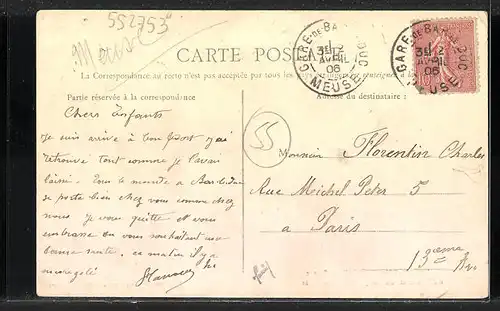 552753
Meuse
CARTE POSTALE
La Correspondance au recto n'est pas acceptée par tous les pays étrangers
Partie réservée à la correspondance
Adresse du destinataire :
GARE DE BAR LE DUC
MEUSE
AVRIL
06
GARE DE BAR LE DUC
AVRIL
06
MEUSE
Chers Enfants
Je suis arrivé à bon port j'ai
retrouvé tout comme je l'avais
laissé. Tout le monde a Bar le Duc
se porte bien chez vous comme chez
nous je vous quitte et vous
embrasse en vous souhaitant une
bonne santé. ce matin il y a
55
Monsieur Florentin Charles
Rue Michel Peter 5
a Paris
13ème Arr